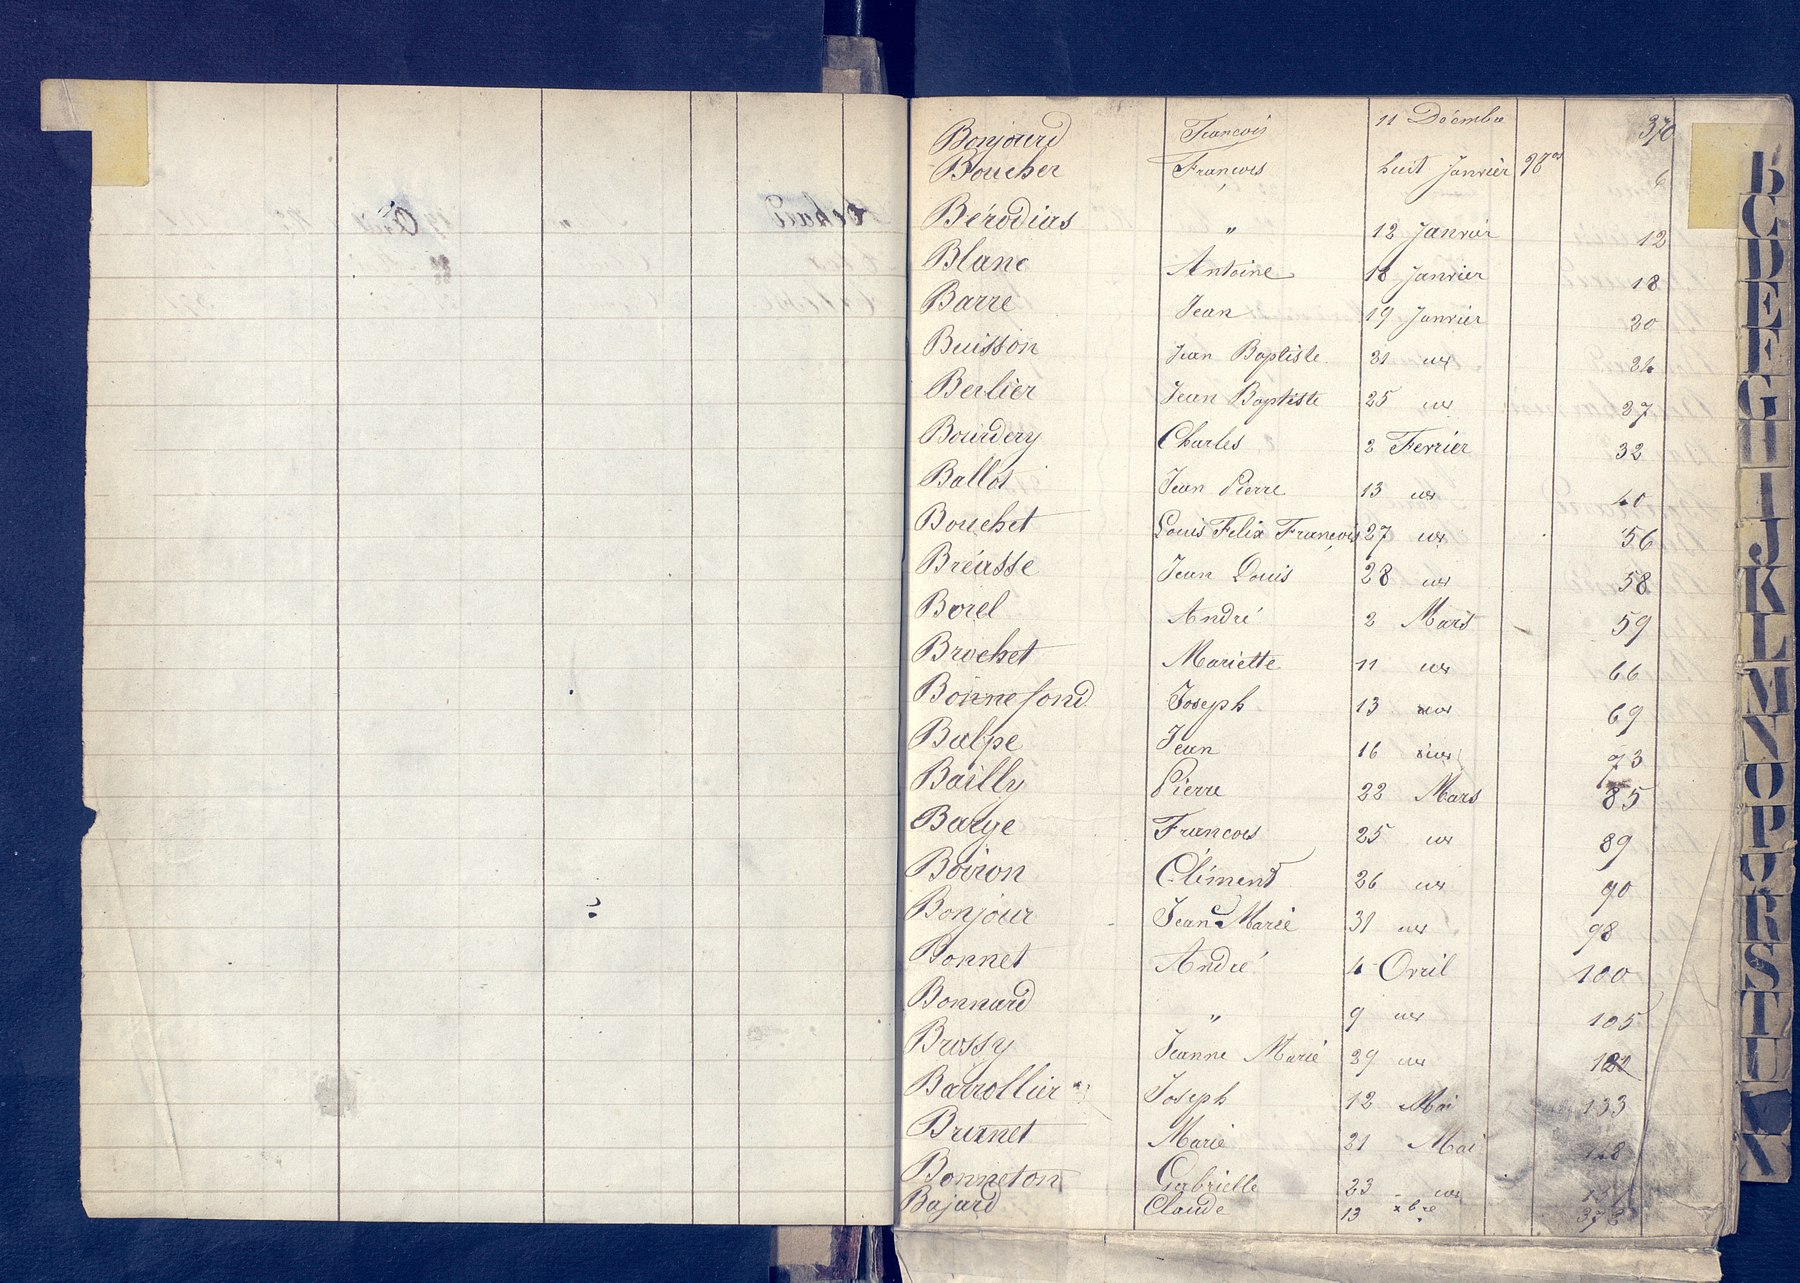 Bonjourd François 11 Décembre 370
Boucher François huit Janvier 6
Bérodias " 12 Janvier 12
Blanc Antoine 18 Janvier 18
Barre Jean 19 Janvier 20
Buisson Jean Baptiste 21
Berlier Jean Baptiste 25 27
Bourdery Charles 2 Fevrier 32
Ballot Jean Pierre 13 40
Bouchet Louis Felix François 27 56
Bréasse Jean Louis 28 58
Borel André 2 Mars 59
Brochet Mariette 11 66
Bonnefond Joseph 13 69
Balpe Jean 16 73
Bailly Pierre 22 Mars 85
Barge Francois 25 89
Boiron Clément 26 90
Bonjour Jean Marie 31 98
Bonnet André 4 Avril 100
Bonnard " 9 105
Brossy Jeanne Marie 29
Barrollier Joseph 12 Mai 133
Brunet Marie 21 Mai
Bonneton Gabrielle 23
Bajard Claude 13 xbre 378
B
C
D
E
F
G
H
I
J
K
L
M
N
O
P
Q
R
S
T
U